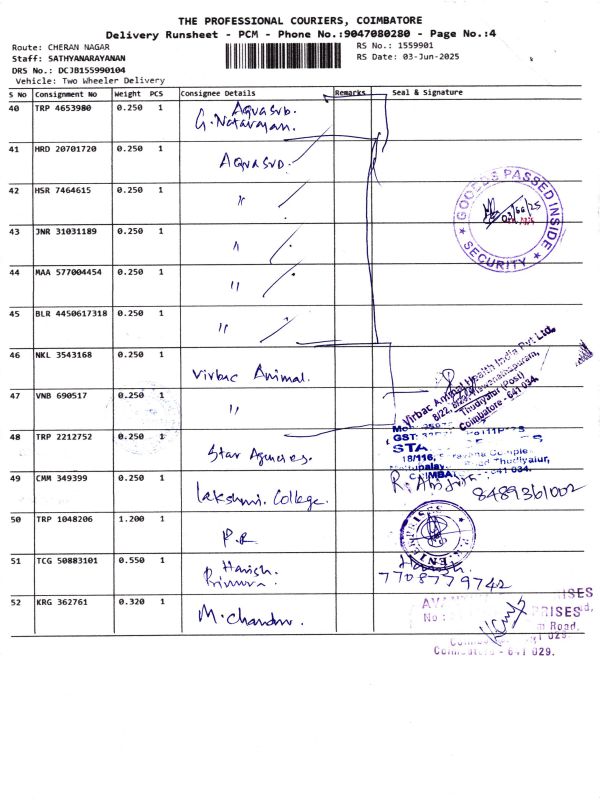 THE PROFESSIONAL COURIERS, COIMBATORE
Delivery Runsheet - PCM - Phone No.:9047080280 - Page No.:4
Route: CHERAN NAGAR
RS No.: 1559901
Staff: SATHYANARAYANAN
RS Date: 03-Jun-2025
DRS No.: DCJB155990104
Vehicle: Two Wheeler Delivery
S No Consignment No Weight PCS Consignee Details Remarks Seal & Signature
40 TRP 4653980 0.250 1 Aquasub.
G. Natarajan.
41 HRD 20701720 0.250 1 Aquasub.
42 HSR 7464615 0.250 1 "
43 JNR 31031189 0.250 1 "
44 MAA 577004454 0.250 1 "
45 BLR 4450617318 0.250 1 "
GOODS PASSED INSIDE
SECURITY
46 NKL 3543168 0.250 1 Virbac Animal.
Virbac Animal Health India Pvt Ltd.
Thudiyalur (Post)
Coimbatore - 641 034.
47 VNB 690517 0.250 1 "
48 TRP 2212752 0.250 1 Star Agencies.
GST:
STA
18/116,
49 CMM 349399 0.250 1 Lakshmi. College.
8489361002
50 TRP 1048206 1.200 1 P.R
51 TCG 50883101 0.550 1 Harish
Harish.
7708779742
52 KRG 362761 0.320 1 M. Chandru.
No :
PRISES
Road,
Coimbatore - 641 029.